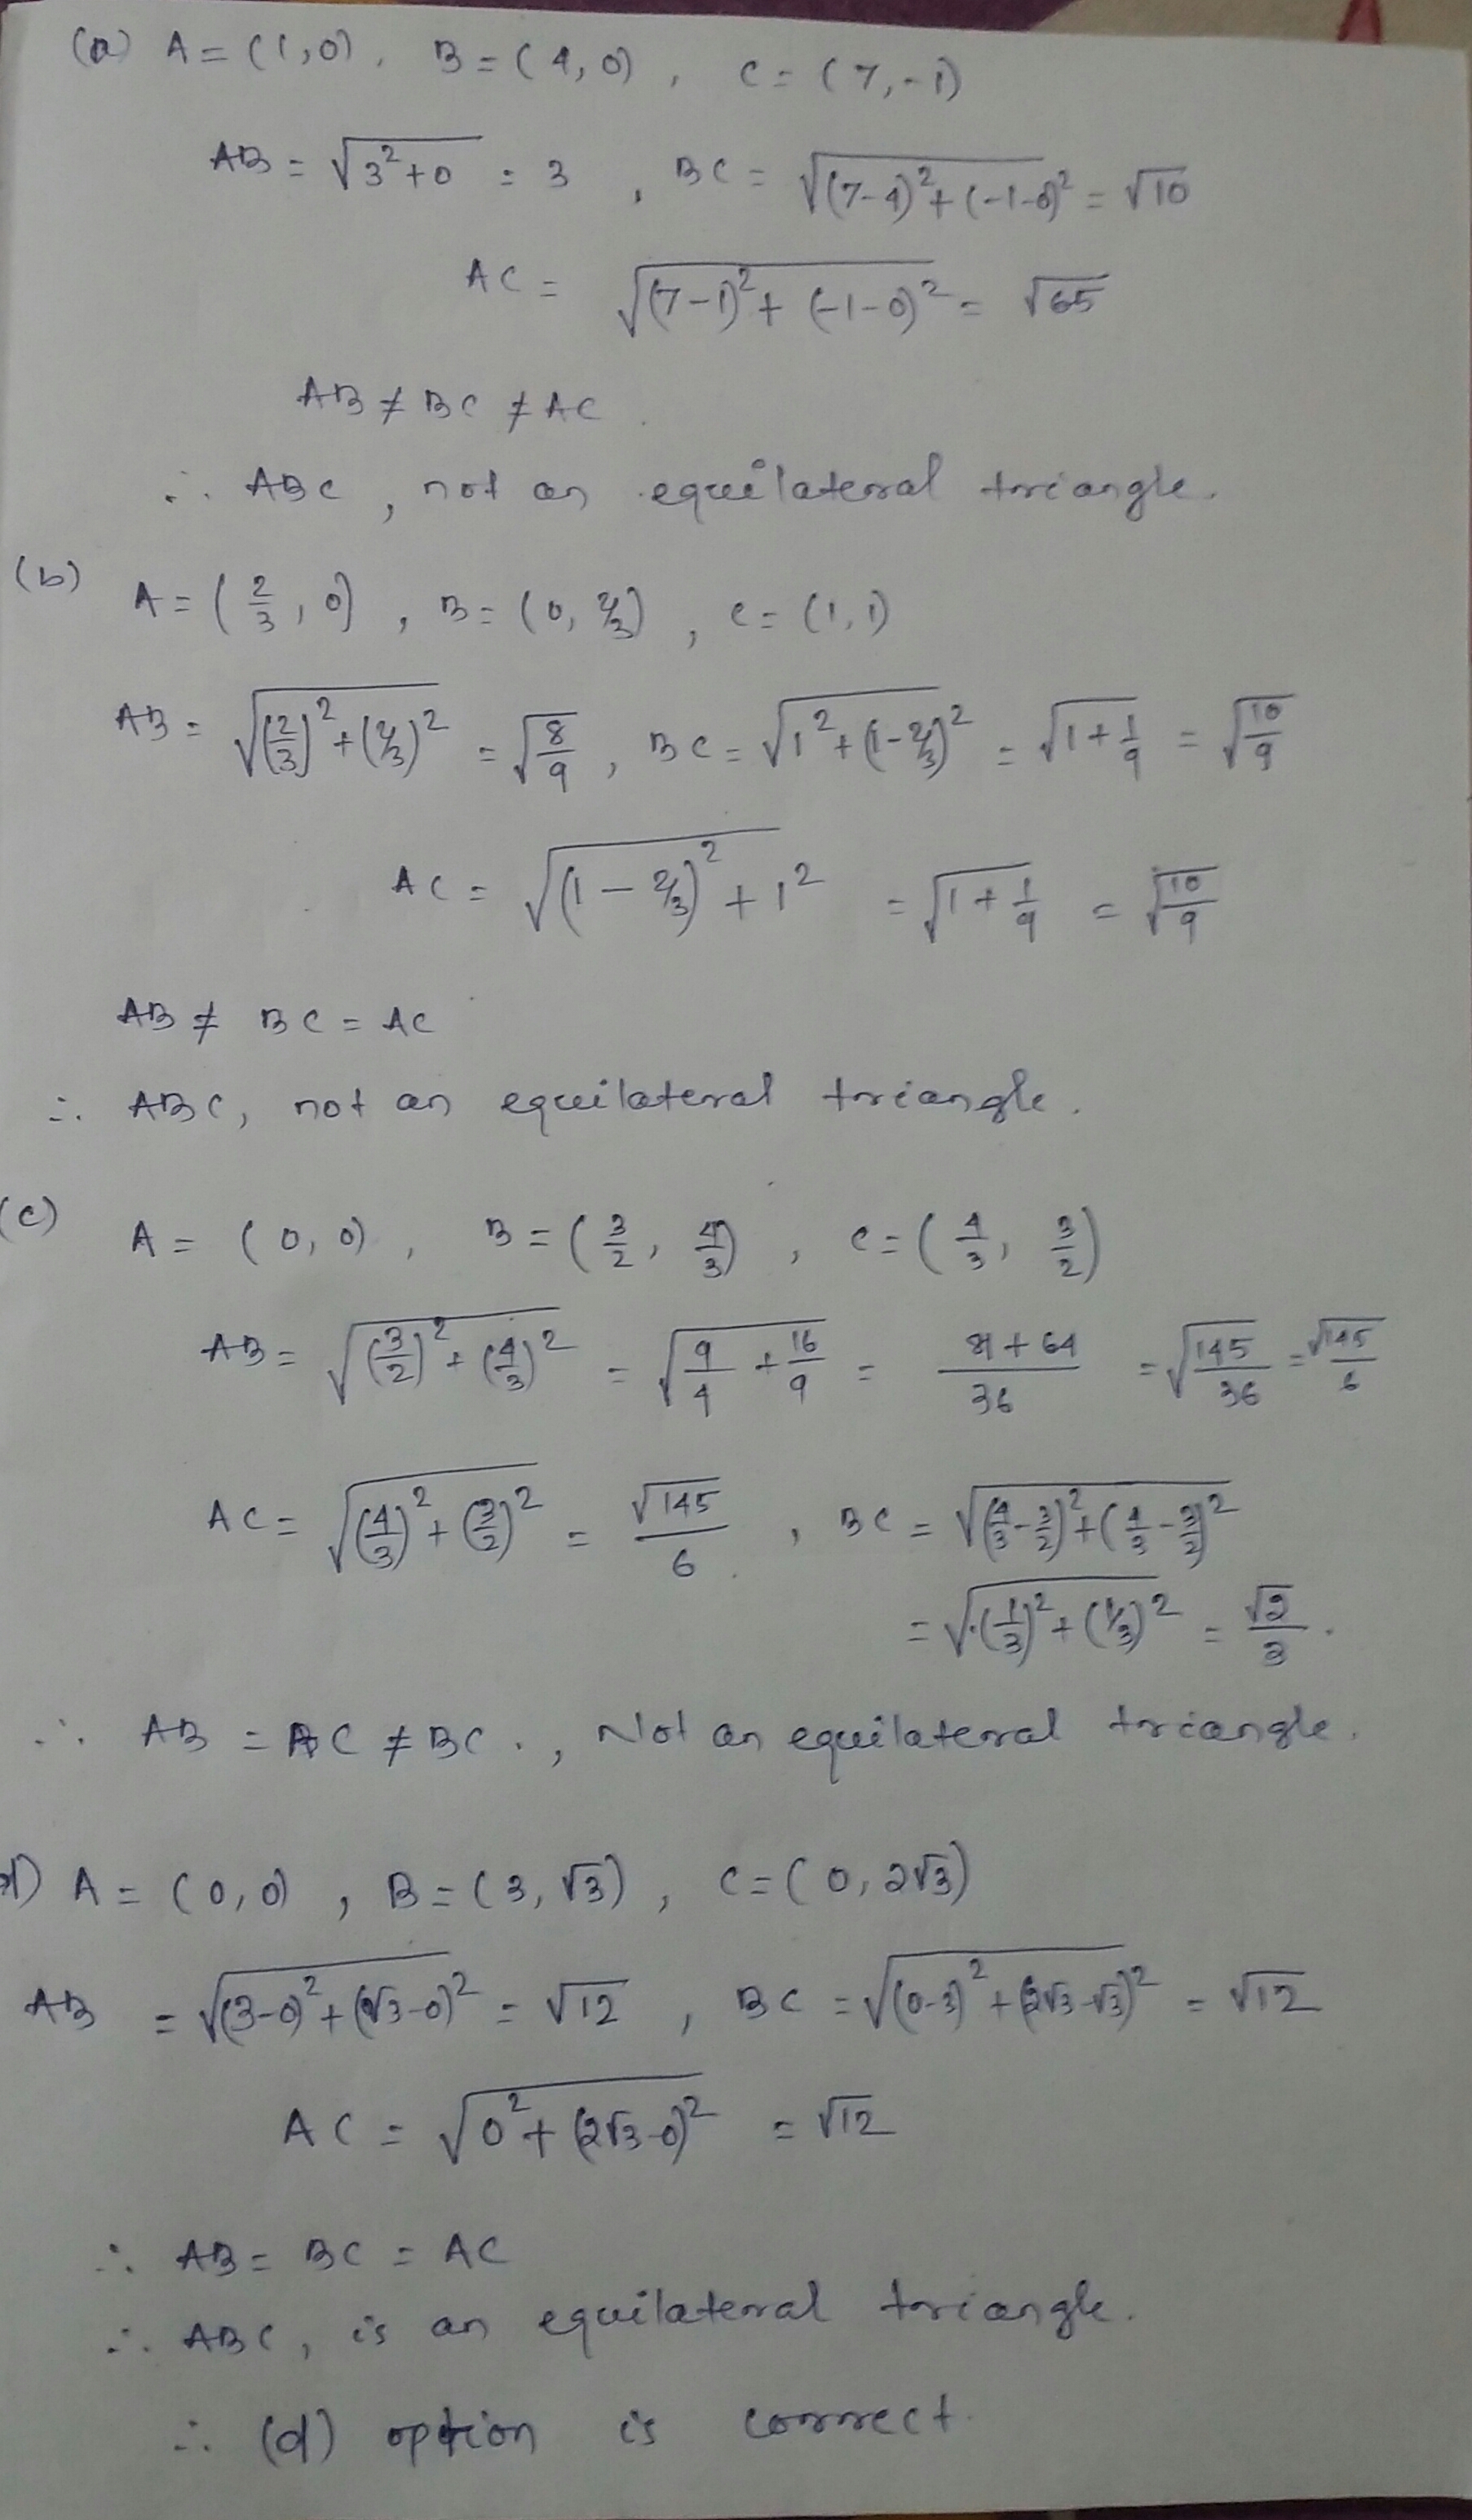 (a) A = (1,0), B = (4,0), C = (7,-1)
AB = √(3²+0) = 3, BC = √((7-4)²+(-1-0)²) = √10
AC = √((7-1)²+(-1-0)²) = √65
AB ≠ BC ≠ AC.
∴ ABC, not an equilateral triangle.
(b) A = (2/3, 0), B = (0, 2/3), C = (1,1)
AB = √((2/3)²+(2/3)²) = √(8/9), BC = √(1²+(1-2/3)²) = √(1+1/9) = √(10/9)
AC = √((1-2/3)²+1²) = √(1+1/9) = √(10/9)
AB ≠ BC = AC
∴ ABC, not an equilateral triangle.
(c) A = (0,0), B = (3/2, 4/3), C = (4/3, 3/2)
AB = √((3/2)²+(4/3)²) = √(9/4+16/9) = (81+64)/36 = √(145/36) = √145/6
AC = √((4/3)²+(3/2)²) = √145/6, BC = √((4/3-3/2)²+(4/3-3/2)²)
= √((1/3)²+(1/3)²) = √2/3.
∴ AB = AC ≠ BC., Not an equilateral triangle.
d) A = (0,0), B = (3,√3), C = (0,2√3)
AB = √((3-0)²+(√3-0)²) = √12, BC = √((0-3)²+(2√3-√3)²) = √12
AC = √(0²+(2√3-0)²) = √12
∴ AB = BC = AC
∴ ABC, is an equilateral triangle.
∴ (d) option is correct.